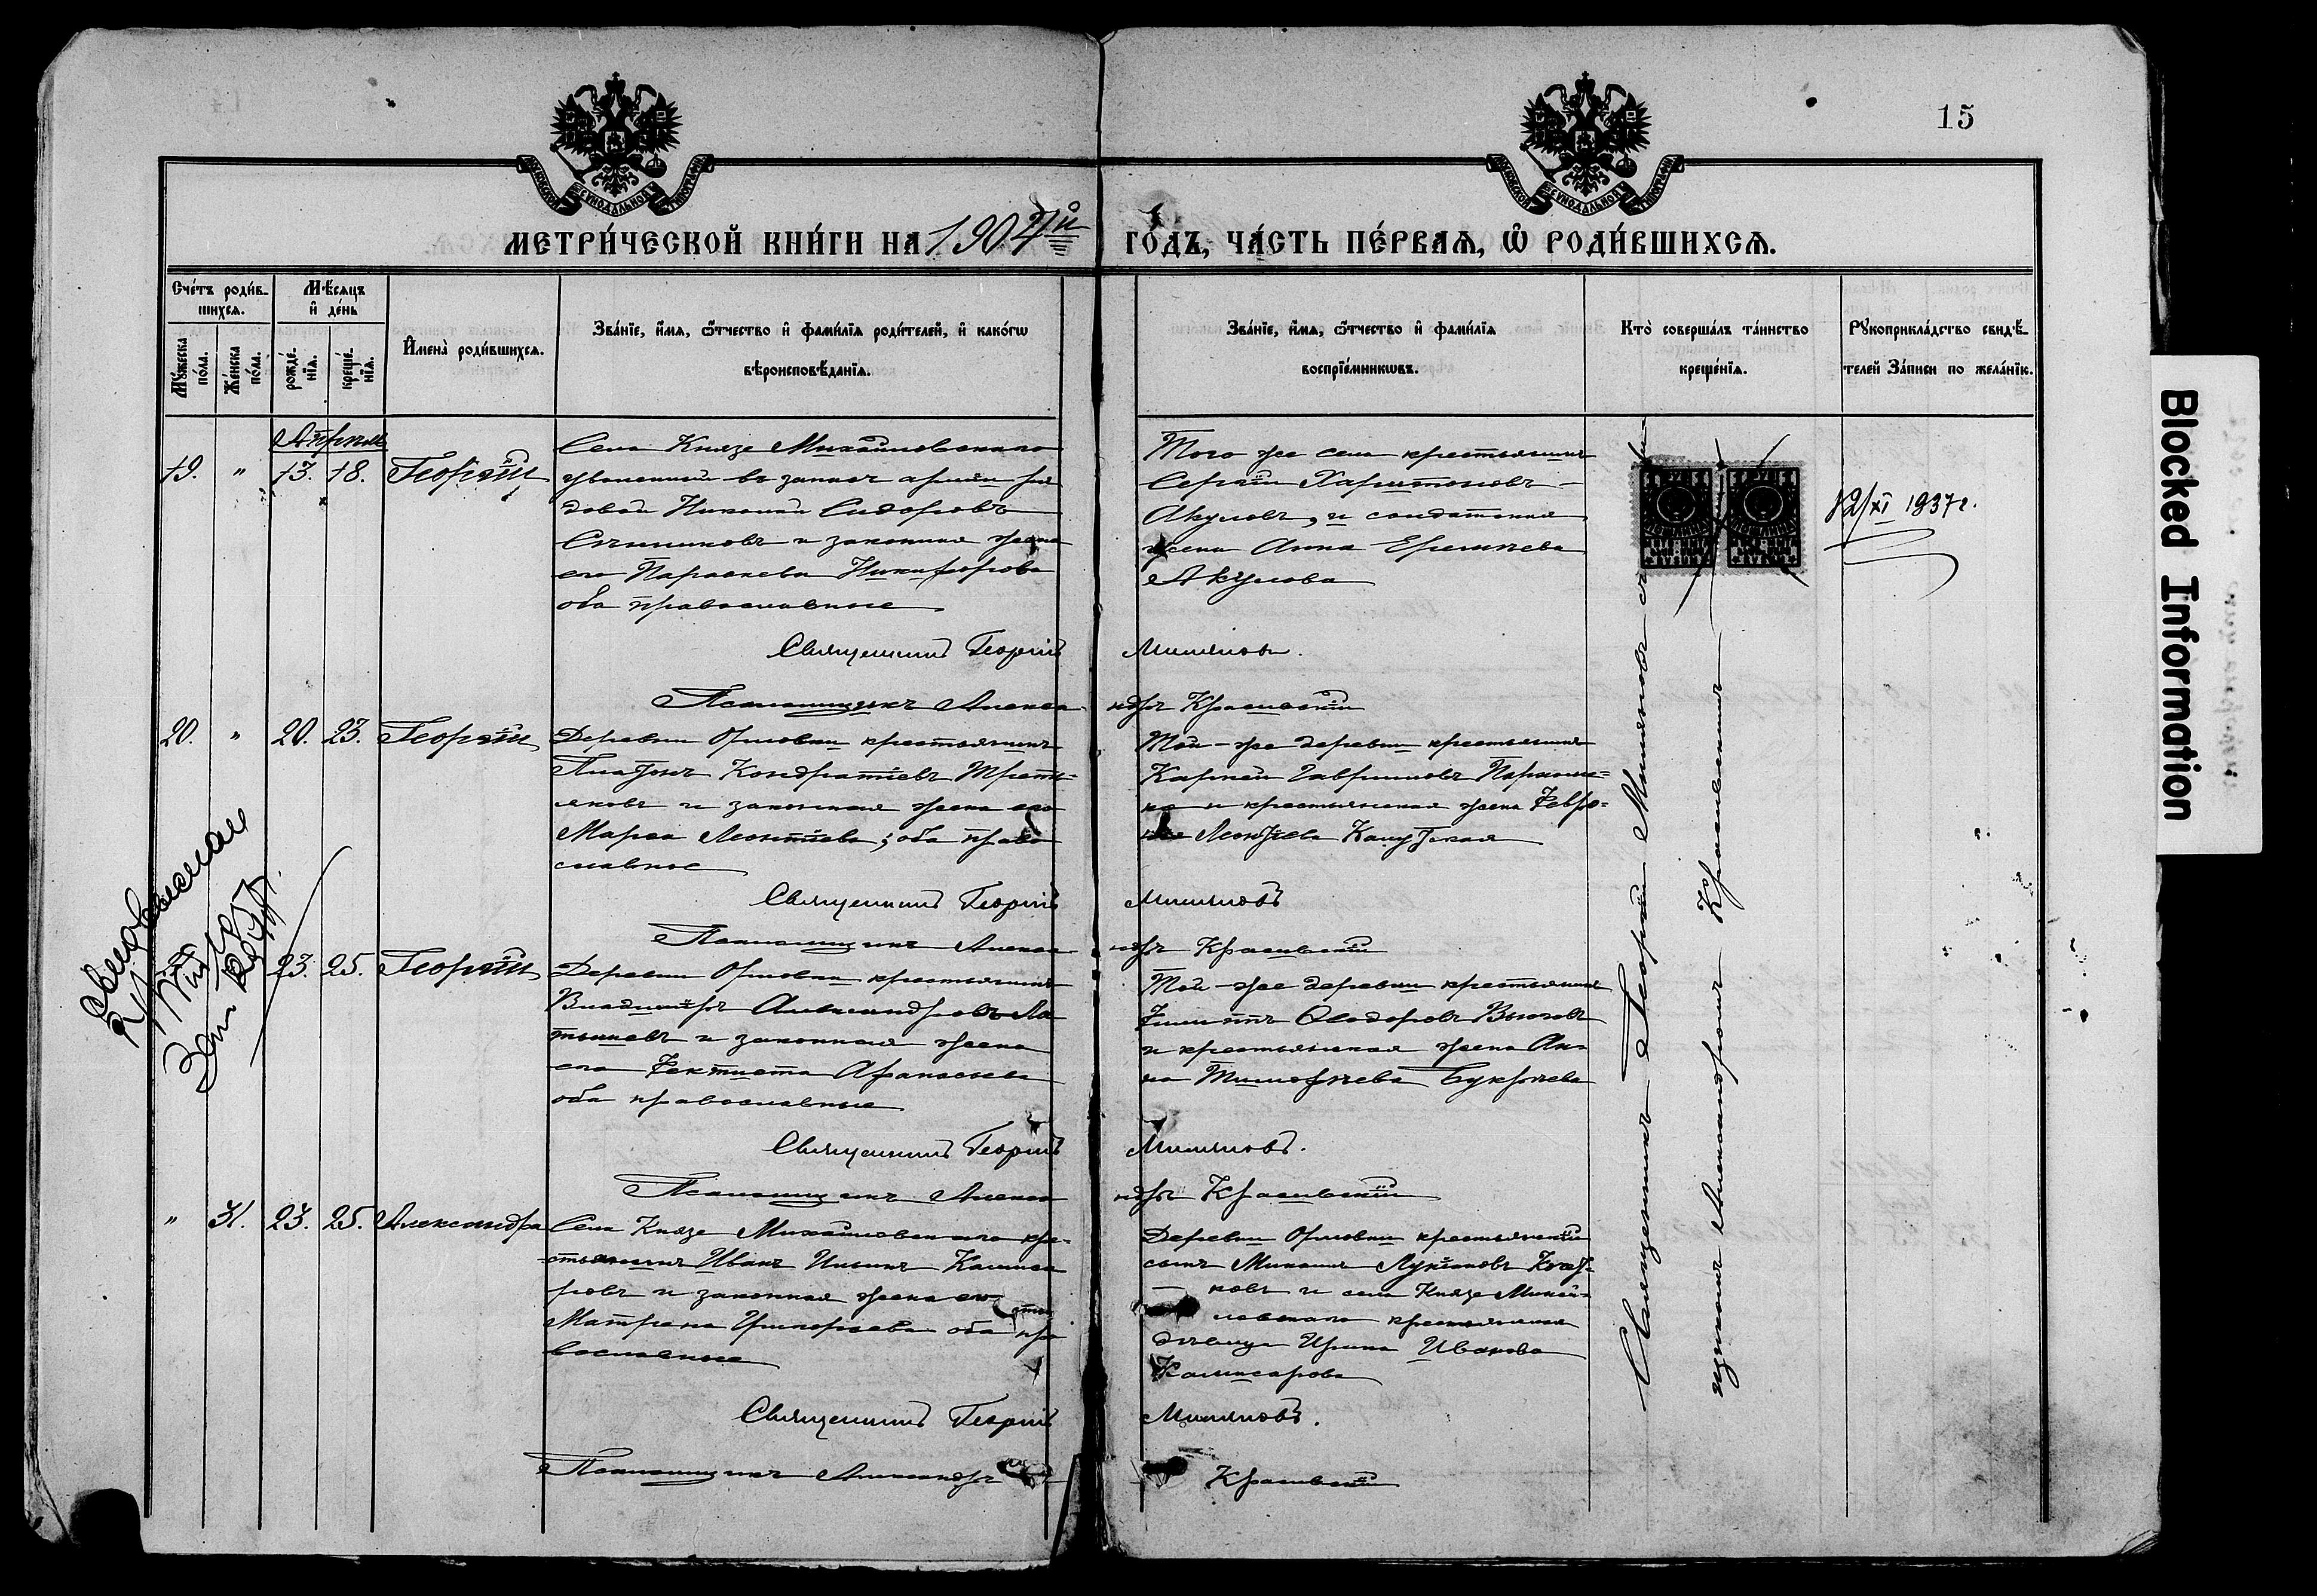 15
МЕТРИ́ЧЕСКОЙ КНИ́ГИ НА 1904й ГО́ДЪ, ЧА́СТЬ ПЕ́РВАЯ, Ѿ РОДИ́ВШИХСЯ.
Сче́тъ роди́в-
шихся.
Мѣ́сяцъ
и҆ де́нь
Мꙋ́жеска
по́ла.
Же́нска
по́ла.
рожде́-
нїя.
креще́-
нїя.
И҆мена̀ роди́вшихся.
Зва́нїе, и҆́мя, ѻ҆́тчество и҆ фами́лїя роди́телей, и҆ како́гѡ
вѣроисповѣ́данїя.
Зва́нїе, и҆́мя, ѻ҆́тчество и҆ фами́лїя
воспрїе́мникѡвъ.
Кто̀ соверша́лъ та́инство
креще́нїя.
Рꙋкоприкла́дство свидѣ́-
телей за́писи по жела́нїю.
Апрѣль
19. " 13. 18. Георгій
Села Князе Михайловскаго
уволенный въ запасъ арміи ря
довой Николай Сидоровъ
и законная жена
его Параскева Никифорова
оба православные
Того же села крестьянинъ
Сергѣй Харитоновъ
Акуловъ, и солдатская
жена Анна
Акулова
12/XI 1937г.
Священникъ Георгій Миляновъ.
Псаломщикъ Александръ Красивскій
20. " 20. 23. Георгій
Деревни Орловки крестьянинъ
Платонъ Кондратіевъ Треть-
яковъ и законная жена его
Марѳа Леонтіева; оба право
славные
Той-же деревни крестьянинъ
Карпъ Гавриловъ
и крестьянская жена Февро-
Леонтіева
Священникъ Георгій Миляновъ
Псаломщикъ Александръ Красивскій
23. 25. Георгій
Деревни Орловки крестьянинъ
Владиміръ Александровъ Ла
тышевъ и законная жена
его Фектиста Афанасьева
оба православные
Той-же деревни крестьянинъ
Филиппъ Ѳеодоровъ
и крестьянская жена Ан-
на Тимофѣева Букрѣева
Священникъ Георгій Миляновъ.
Псаломщикъ Александръ Красивскій
" 31. 23. 25. Александра
Села Князе Михайловскаго кре-
стьянинъ Иванъ Ильинъ Камиса
ровъ и законная жена его
Матрена Григорьева оба пра
вославные
Деревни Орловки крестьянскій
сынъ Михаилъ Лукіановъ
ковъ и села Князе Михай-
ловскаго крестьянская
дѣвица Ирина Иванова
Камисарова
Священникъ Георгій Миляновъ.
Псаломщикъ Александръ Красивскій
Священникъ Георгій Миляновъ съ
Александромъ Красивскимъ
Blocked Information